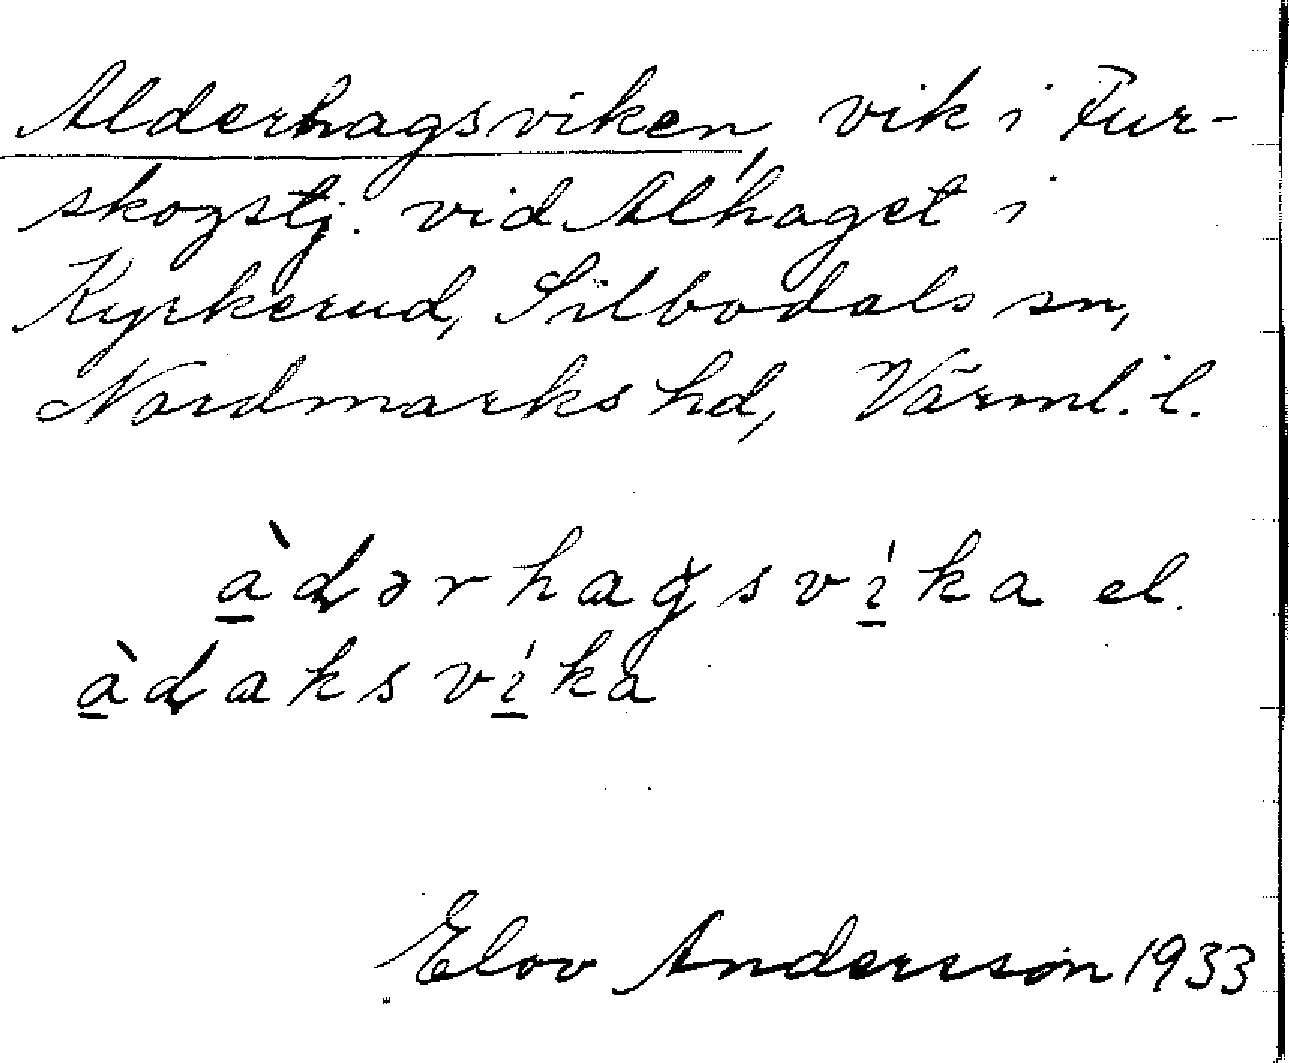 Alderhagsviken, vik i Fur-
skogstj. vid Alhaget i
Kyrkerud, Silbodals sn,
Nordmarks hd, Värml. l.
à̱dərhagsví̱ka el.
à̱daksví̱ka
Elov Andersson 1933